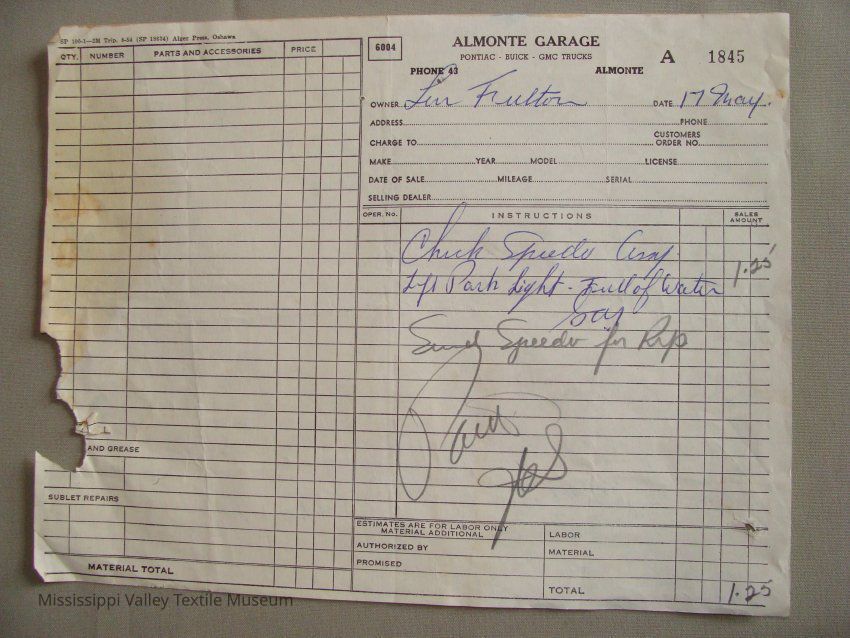 SP 100-1—2M Trip. 8-54 (SP 19674) Alger Press, Oshawa
QTY. NUMBER PARTS AND ACCESSORIES PRICE
AND GREASE
SUBLET REPAIRS
MATERIAL TOTAL
6004 ALMONTE GARAGE A 1845
PONTIAC - BUICK - GMC TRUCKS
PHONE 43 ALMONTE
OWNER Len Fulton DATE 17 May.
ADDRESS PHONE
CHARGE TO CUSTOMERS ORDER NO.
MAKE YEAR MODEL LICENSE
DATE OF SALE MILEAGE SERIAL
SELLING DEALER
OPER. No. INSTRUCTIONS SALES AMOUNT
Check Speedo
1.25
Left Park Light - Full of Water
Send Speedo for Rep
Paid
ESTIMATES ARE FOR LABOR ONLY
MATERIAL ADDITIONAL
AUTHORIZED BY
PROMISED
LABOR
MATERIAL
TOTAL 1.25
Mississippi Valley Textile Museum